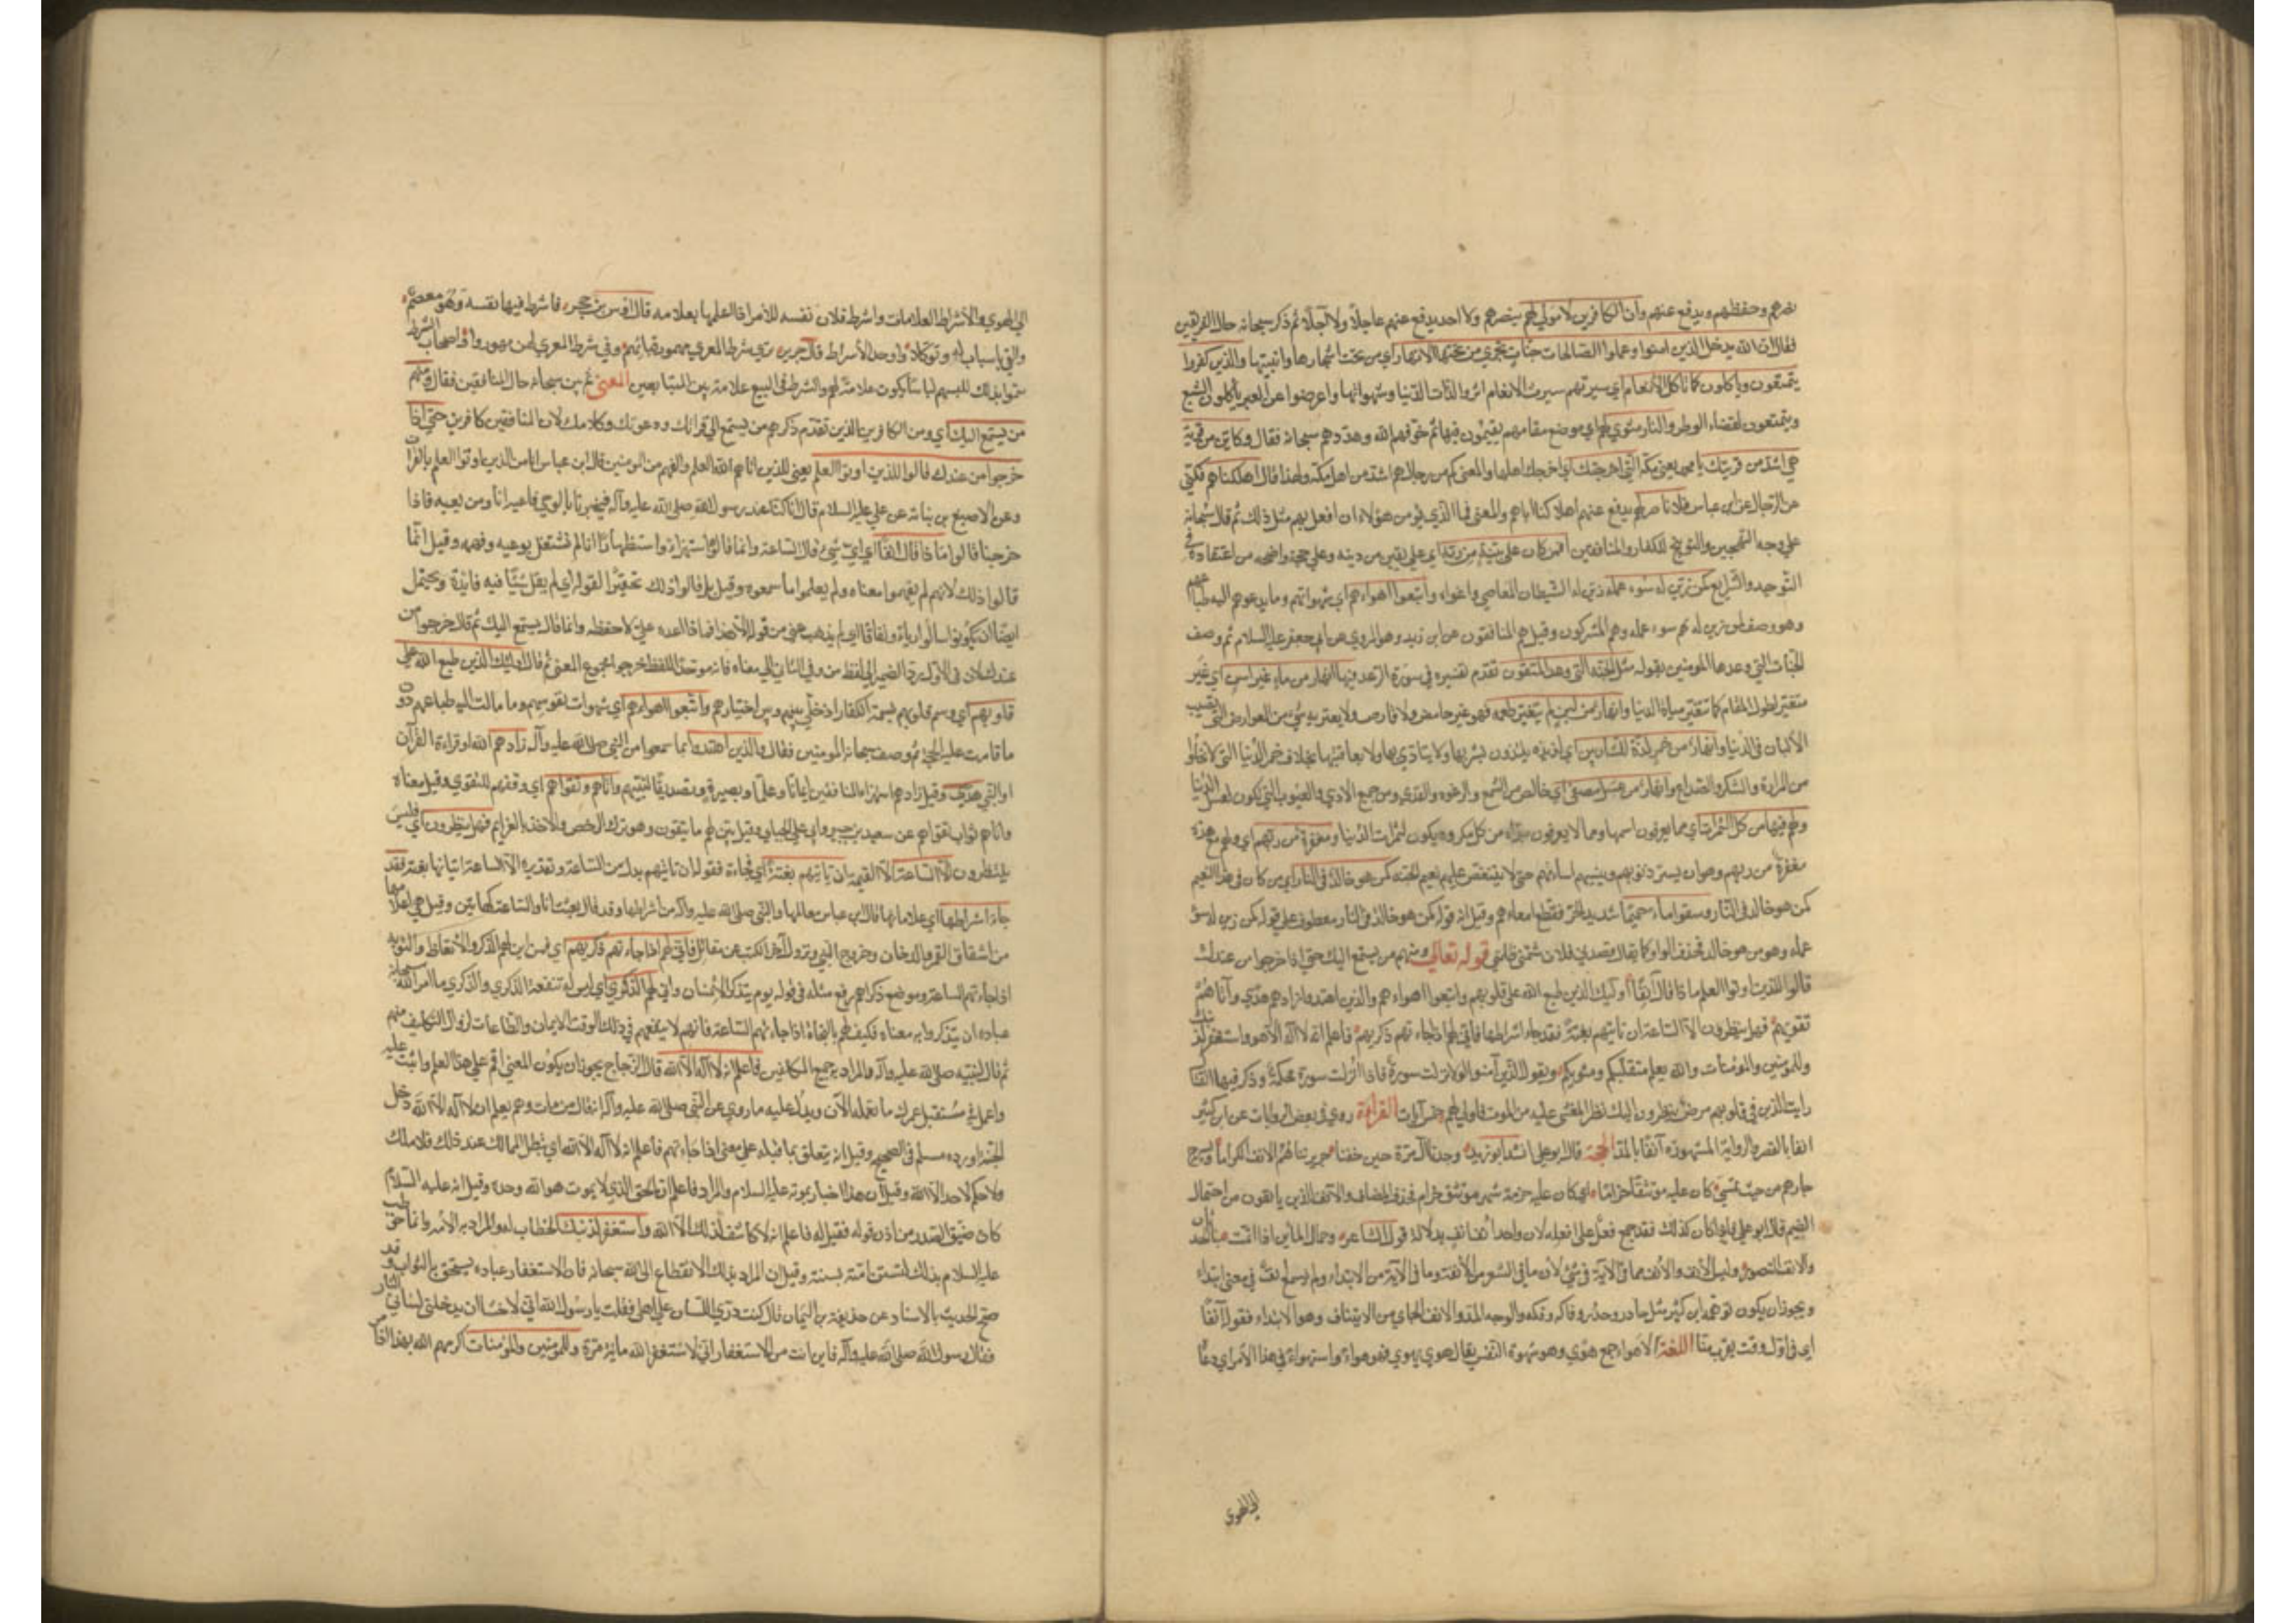 نصرهم وحفظهم ويدفع عنهم وان الكافرين لا مولى لهم ينصرهم ولا احد يدفع عنهم عاجلا ولا آجلا ثم ذكر سبحانه حال الفريقين
فقال ان الله يدخل الذين امنوا وعملوا الصالحات جنات تجري من تحتها الانهار اي من تحت اشجارها وابنيتها والذين كفروا
يتمتعون وياكلون كما تاكل الانعام اي سيرتهم سيرت الانعام اثروا لذات الدنيا وشهواتها واعرضوا عن العبر ياكلون للشبع
ويتمتعون لقضاء الوطر والنار مثوى لهم اي موضع مقامهم يقيمون فيها ثم خوفهم الله وهددهم سبحانه فقال وكاين من قرية
هي اشد من قريتك يا محمد يعني مكة التي اخرجتك اي اخرجك اهلها والمعنى كم من رجال هم اشد من اهل مكة ولهذا قال اهلكناهم فكنى
عن الرجال عن ابن عباس فلا ناصر لهم يدفع عنهم اهلاكنا اياهم والمعنى فما الذي يؤمن هؤلاء ان افعل بهم مثل ذلك ثم قال سبحانه
على وجه التهجين والتوبيخ للكفار والمنافقين افمن كان على بينة من ربه اي على يقين من دينه وعلى حجة واضحة من اعتقاده في
التوحيد والشرايع كمن زين له سوء عمله زين له الشيطان المعاصي واغواه واتبعوا اهواءهم اي شهواتهم وما يدعوهم اليه طباعهم
وهو وصف لمن زين له سوء عمله وهم المشركون وقيل هم المنافقون عن ابن زيد وهو المروي عن ابي جعفر عليه السلام ثم وصف
الجنات التي وعدها المومنين بقوله مثل الجنة التي وعد المتقون تقدم تفسيره في سورة الرعد فيها انهار من ماء غير اسن اي غير
متغير لطول المقام كما تتغير مياه الدنيا وانهار من لبن لم يتغير طعمه فهو غير حامض ولا قارص ولا يعتريه شيء من العوارض التي تصيب
الالبان في الدنيا وانهار من خمر لذة للشاربين اي لذيذة يلتذون بشربها ولا يتاذي بها ولا بعاقبتها بخلاف خمر الدنيا التي لا تخلوا
من المرارة والسكر والصداع وانهار من عسل مصفى اي خالص من الشمع والرغوة والقذى ومن جميع الاذي والعيوب التي تكون لعسل الدنيا
ولهم فيها من كل الثمرات اي مما يعرفون اسمها ومما لا يعرفون مبراة من كل مكروه يكون لثمرات الدنيا ومغفرة من ربهم اي ولهم مع هذه
مغفرة من ربهم وهو ان يستر ذنوبهم وينسيهم اساءتهم حتى لا يتنغص عليهم نعيم الجنة كمن هو خالد في النار اي من كان في هذا النعيم
كمن هو خالد في النار وسقوا ماء حميما شديد الحر فقطع امعاءهم وقيل ان قوله كمن هو خالد في النار معطوف على قوله كمن زين له سوء
عمله وهو من هو خالد فحذف الواو كما يقال قصدني فلان شتمني ظلمني قوله تعالى ومنهم من يستمع اليك حتى اذا خرجوا من عندك
قالوا للذين اوتوا العلم ماذا قال آنفا اوليك الذين طبع الله على قلوبهم واتبعوا اهواءهم والذين اهتدوا زادهم هدى وآتاهم
تقويهم فهل ينظرون الا الساعة ان تاتيهم بغتة فقد جاء اشراطها فاني لهم اذا جاءتهم ذكريهم فاعلم انه لا آله الا هو واستغفر لذنبك
وللمومنين والمومنات والله يعلم متقلبكم ومثويكم ويقول الذين آمنوا لولا نزلت سورة فاذا انزلت سورة محكمة وذكر فيها القتال
رايت الذين في قلوبهم مرض ينظرون اليك نظر المغشي عليه من الموت فاولى لهم خمس آيات القراءة روي في بعض الروايات عن ابن كثير
انفا بالقصر والرواية المشهورة آنفا بالمد الحجة قال ابو علي انشد ابو زيد وجدنا آل مرة حين خفنا جريرتنا هم الانف الكراما ويسرح
جارهم من حيث يمسي كان عليه مؤتنفا حراما اي كان عليه حرمة شهر مؤتنف حرام فحذف المضاف والآنف الذين يانفون من احتمال
الضيم قال ابو علي فاذا كان كذلك فقد جمع فعل على افعل لان واحد انف انف بدلالة قول الشاعر وحمال المئين اذا المت بنا الحدثان
والانف النصور وليس الانف والانف مما في الآية في شيء لان ما في الشعر من الانفة وما في الآية من الابتداء ولم يسمع انف في معنى ابتداء
ويجوز ان يكون توهمه ابن كثير مثل حاذر وحذر وفاكه وفكه والوجه المد والانف الجاي من الايتناف وهو الابتداء فقوله آنفا
اي في اول وقت يقرب منا اللغة الاهواء جمع هوى وهو شهوة النفس يقال هوى يهوي هوى فهو هو واستهواه في هذا الامر اي دعاه
الى الهوى
الى الهوى والاشراط العلامات واشرط فلان نفسه للامر اذا اعلمها بعلامة قال اوس بن حجر فاشرط فيها نفسه وهو معصم
والقى باسباب له وتوكلا واحد الاشراط قال جرير تري شرط المعزي مهور نسائهم وفي شرط المعزي لهن مهور واصحاب الشرط
سموا بذلك للبسهم لباسا يكون علامة لهم والشرط في البيع علامة بين المتبايعين المعنى ثم بين سبحانه حال المنافقين فقال ومنهم
من يستمع اليك اي ومن الكافرين الذين تقدم ذكرهم من يستمع الى قراءتك ودعوتك وكلامك لان المنافقين كافرين حتى اذا
خرجوا من عندك قالوا للذين اوتوا العلم يعني للذين اتاهم الله العلم والفهم من المومنين قال ابن عباس انا من الذين اوتوا العلم بالقرآن
وعن الاصبغ بن نباتة عن علي عليه السلام قال انا كنا عند رسول الله صلى الله عليه وآله فيخبرنا بالوحي فاعيه انا ومن يعيه فاذا
خرجنا قالوا ماذا قال آنفا اي اي شيء قال الساعة وانما قالوا استهزاء واستظهارا انا لم نشتغل بوعيه وفهمه وقيل انما
قالوا ذلك لانهم لم يفهموا معناه ولم يعلموا ما سمعوه وقيل بل قالوا ذلك تحقيرا لقوله اي لم يقل شيئا فيه فايدة ويحتمل
ايضا ان يكونوا سالوا رياء ونفاقا اي لم يذهب عني من قوله الا هذا فماذا اعده علي لاحفظه وانما قال يستمع اليك ثم قال خرجوا من
عندك لان في الاول يرد الضمير الى لفظ من وفي الثاني الى معناه فانه موحد اللفظ مجموع المعنى ثم قال اوليك الذين طبع الله على
قلوبهم اي وسم قلوبهم بسمة الكفار او خلى بينهم وبين اختيارهم واتبعوا اهواءهم اي شهوات نفوسهم وما مالت اليه طباعهم دون
ما قامت عليه الحجة ثم وصف سبحانه المومنين فقال والذين اهتدوا بما سمعوا من النبي صلى الله عليه وآله زادهم الله او قراءة القرآن
او النبي هدى وقيل زادهم استهزاء المنافقين ايمانا وعلما وبصيرة وتصديقا لنبيهم واتاهم تقواهم اي وفقهم للتقوي وقيل معناه
واتاهم ثواب تقواهم عن سعيد بن جبير وابي علي الجبائي وقيل بين لهم ما يتقون وهو ترك الرخص والاخذ بالعزايم فهل ينظرون اي فليس
ينتظرون الا الساعة الا القيمة ان تاتيهم بغتة اي فجاءة فقوله ان تاتيهم بدل من الساعة وتقديره الا الساعة اتيانها بغتة فقد
جاء اشراطها اي علاماتها قال ابن عباس معالمها والنبي صلى الله عليه وآله من اشراطها وقد قال بعثت انا والساعة كهاتين وقيل هي اعلامها
من انشقاق القمر والدخان وخروج النبي ونزول آخر الكتب عن مقاتل فاني لهم اذا جاءتهم ذكريهم اي فمن اين لهم الذكر والاتعاظ والتوبة
اذا جاءتهم الساعة وموضع ذكراهم رفع مثله في قوله يوم يتذكر الانسان واني له الذكري اي ليس له تنفعه الذكري والذكري ما امر الله سبحانه
عباده ان يتذكروا به معناه فكيف لهم بالنجاة اذا جاءتهم الساعة فانهم لا ينفعهم في ذلك الوقت الايمان والطاعات لزوال التكليف عنهم
ثم قال لنبيه صلى الله عليه وآله والمراد به جميع المكلفين فاعلم انه لا آله الا الله قال الزجاج يجوز ان يكون المعنى اقم على هذا العلم واثبت عليه
واعلم في مستقبل عمرك ما تعلمه الآن ويدل عليه ما روي عن النبي صلى الله عليه وآله انه قال من مات وهو يعلم ان لا آله الا الله دخل
الجنة اورده مسلم في الصحيح وقيل انه يتعلق بما قبله على معنى اذا جاءتهم فاعلم انه لا آله الا الله اي يبطل الممالك عند ذلك فلا ملك
ولا حكم لاحد الا الله وقيل ان هذا اخبار بموته عليه السلام والمراد فاعلم ان الحي الذي لا يموت هو الله وحده وقيل انه عليه السلام
كان ضيق الصدر من اذى قومه فقيل له فاعلم انه لا كاشف لذلك الا الله واستغفر لذنبك الخطاب له والمراد به الامة وانما خوطب
عليه السلام بذلك لتستن امته بسنته وقيل ان المراد بذلك الانقطاع الى الله سبحانه فان الاستغفار عبادة يستحق به الثواب وقد
صح الحديث بالاسناد عن حذيفة بن اليمان قال كنت ذرب اللسان على اهلي فقلت يا رسول الله اني لاخشى ان يدخلني لساني النار
فقال رسول الله صلى الله عليه وآله فاين انت من الاستغفار اني لاستغفر الله ماية مرة وللمومنين والمؤمنات اكرمهم الله بهذا